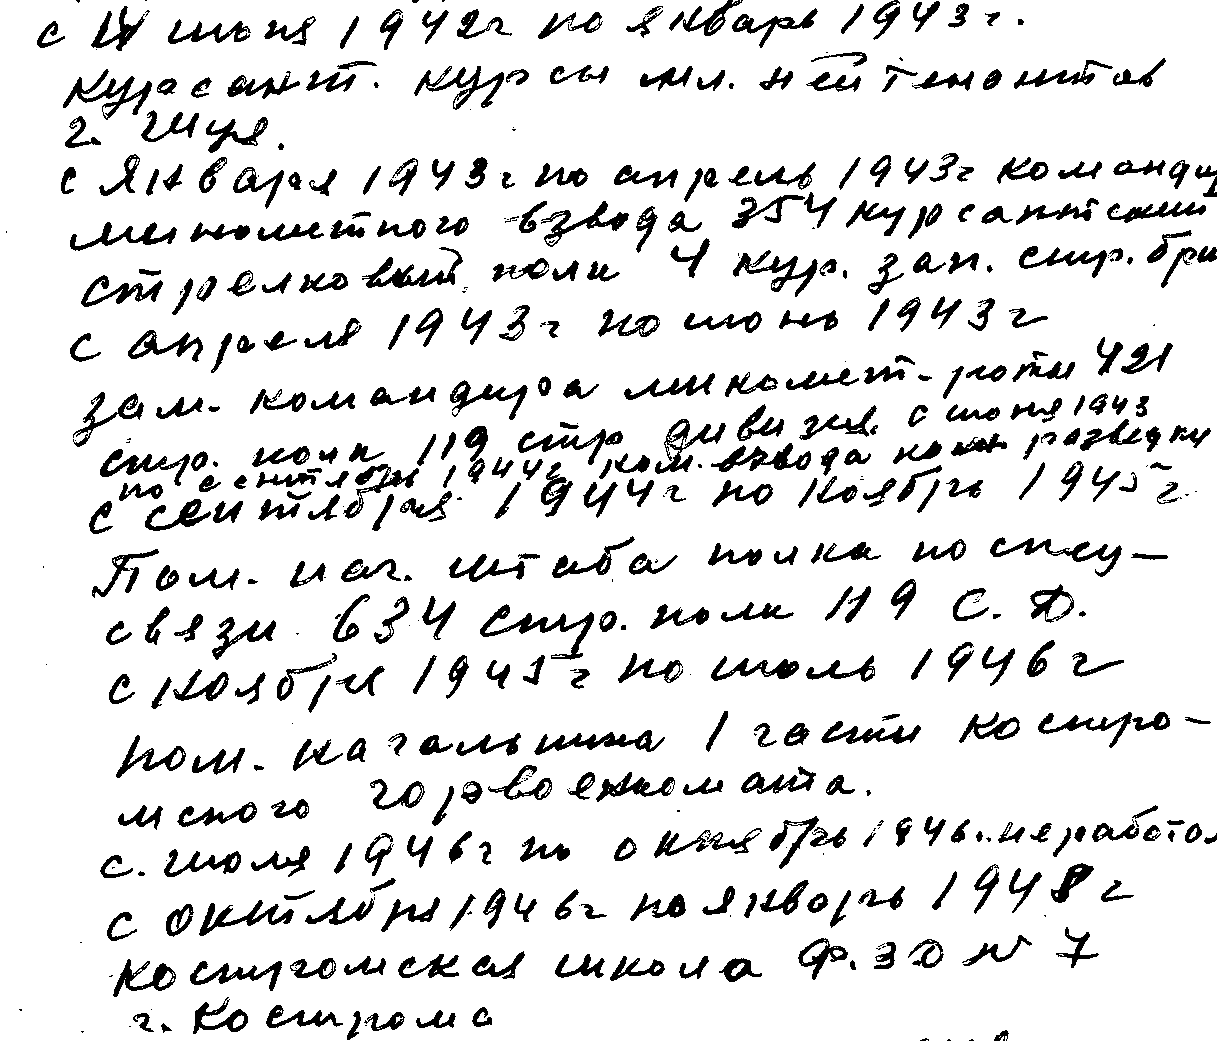 с июня 1942г по январь 1943г.
Курсант. курсы мл. лейтенантов
г. Шуя.
с января 1943г по апрель 1943г команди
минометного взвода 354 курсантский
стрелковый полк 4 кур. зап. стр. бри
с апреля 1943г по июнь 1943г
зам. командира миномет. роты 421
стр. полк 119 стр дивизия. с июня 1943
по сентябрь 1944г ком. взвода разведки
с сентября 1944г по ноябрь 1945г
Пом. нач. штаба полка по спец
связи 634 стр. полк 119 С.Д.
с ноября 1945г по июль 1946г
пом. начальника 1 части Костро-
мского горвоенкомата.
с. июля 1946г по октябрь 1946. не работал
с октября 1946г по январь 1948г
Костромская школа Ф.ЗО № 7
г. Кострома